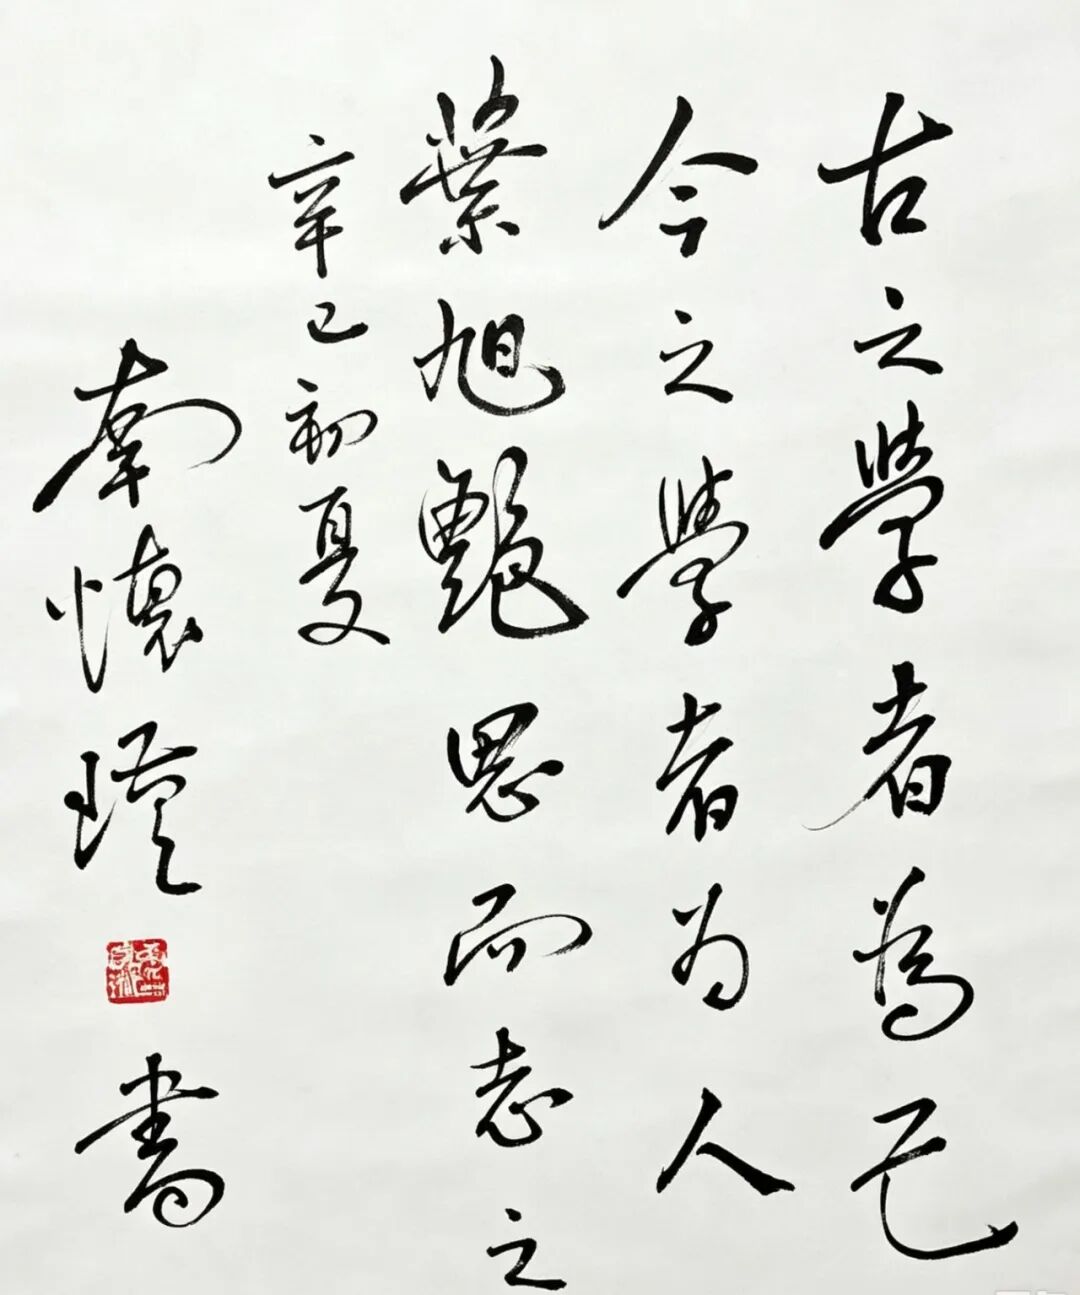 古之學者為己
今之學者为人
葉旭艷思而志之
辛巳初夏
南懷瑾書